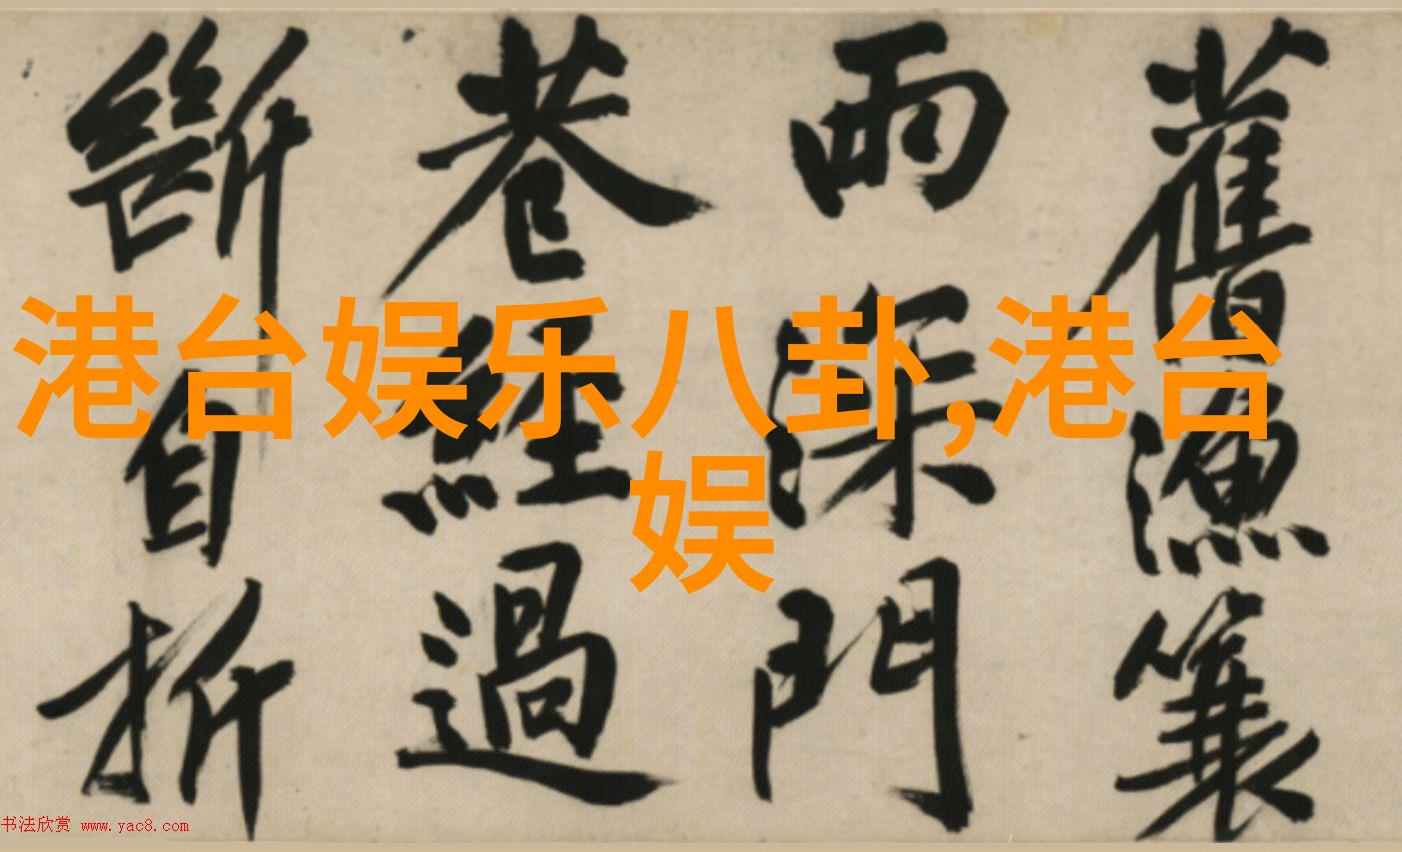 舊漁簑
雨深門
巷經過
斷自折
港台娱乐八卦,港台
娱
书法欣赏 www.yac8.com